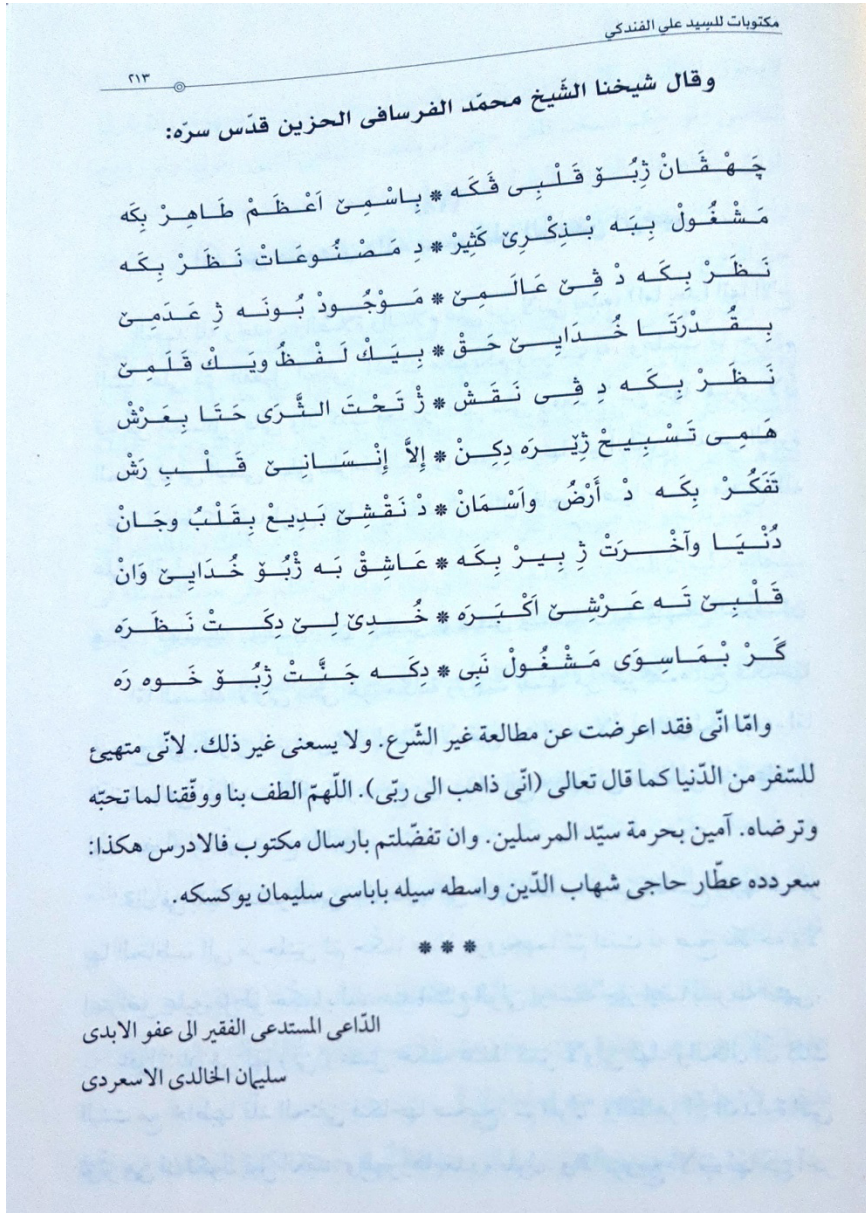 مكتوبات للسيد علي الفندكي
٢١٣
وقال شيخنا الشّيخ محمّد الفرسافى الحزين قدّس سرّه:
چَـهْـڤَـانْ ژِبُـوۤ قَـلْـبِـى ڤَـكَـه * بِـاسْـمِـىٓ اَعْـظَـمْ طَـاهِـرْ بِكَه
مَـشْـغُولْ بِـبَـه بْـذِكْـرِىٓ كَثِيرْ * دِ مَـصْـنُـوعَـاتْ نَـظَـرْ بِـكَـه
نَـظَـرْ بِـكَـه دْ ڤِـىٓ عَـالَـمِـىٓ * مَـوْجُـودْ بُـونَـه ژِ عَـدَمِـىٓ
بِـقُـدْرَتَـا خُـدَايِـىٓ حَـقْ * بِـيَـكْ لَـفْـظُ ويَـكْ قَـلَـمِـىٓ
نَـظَـرْ بِـكَـه دِ ڤِـى نَـقَـشْ * ژْ تَـحْـتَ الـثَّـرَى حَـتَـا بِـعَـرْشْ
هَـمِـى تَـسْـبِـيـحْ ژِێـرَه دِكِـنْ * إِلاَّ إِنْـسَـانِـىٓ قَـلْـبِ رَشْ
تَفَكُـرْ بِكَـه دْ أَرْضُ واَسْـمَـانْ * دْ نَـقْـشِـىٓ بَـدِيـعْ بِـقَـلْـبُ وجَـانْ
دُنْـيَـا وآخْـرَتْ ژِ بِـيـرْ بِـكَـه * عَـاشِـقْ بَـه ژْبُـوۤ خُـدَايِـىٓ وَانْ
قَـلْـبِـىٓ تَـه عَـرْشِـىٓ اَكْـبَـرَه * خُـدِىٓ لِـىٓ دكَـتْ نَـظَـرَه
گَـرْ بْـمَـاسِـوَى مَـشْـغُـولْ نَبِى * دِكَـه جَـنَّـتْ ژِبُـوۤ خَـوه رَه
وامّا انّى فقد اعرضت عن مطالعة غير الشّرع. ولا يسعنى غير ذلك. لانّى متهيئ
للسّفر من الدّنيا كما قال تعالى (انّى ذاهب الى ربّى). اللّهمّ الطف بنا ووفّقنا لما تحبّه
وترضاه. آمين بحرمة سيّد المرسلين. وان تفضّلتم بارسال مكتوب فالادرس هكذا:
سعردده عطّار حاجى شهاب الدّين واسطه سيله باباسى سليمان يوكسكه.
* * *
الدّاعى المستدعى الفقير الى عفو الابدى
سليمان الخالدى الاسعردى